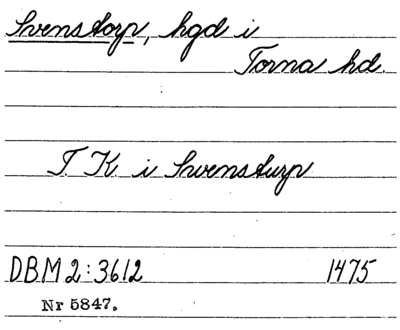 Svenstorp, hgd i
Torna hd.
T K i Swensturp
DBM 2:3612 1475
Nr 5847.